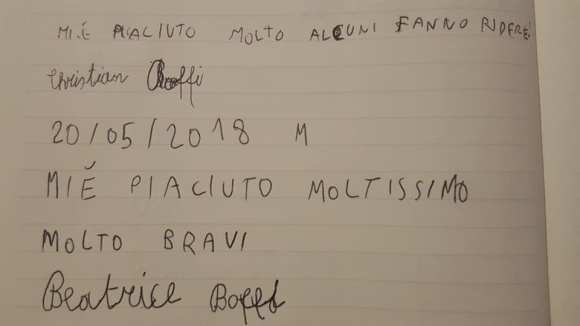 MI.É PIACIUTO MOLTO ALCUNI FANNO RIDERE!
Christian Boffi
20/05/2018 M
MIÉ PIACIUTO MOLTISSIMO
MOLTO BRAVI
Beatrice Boffi